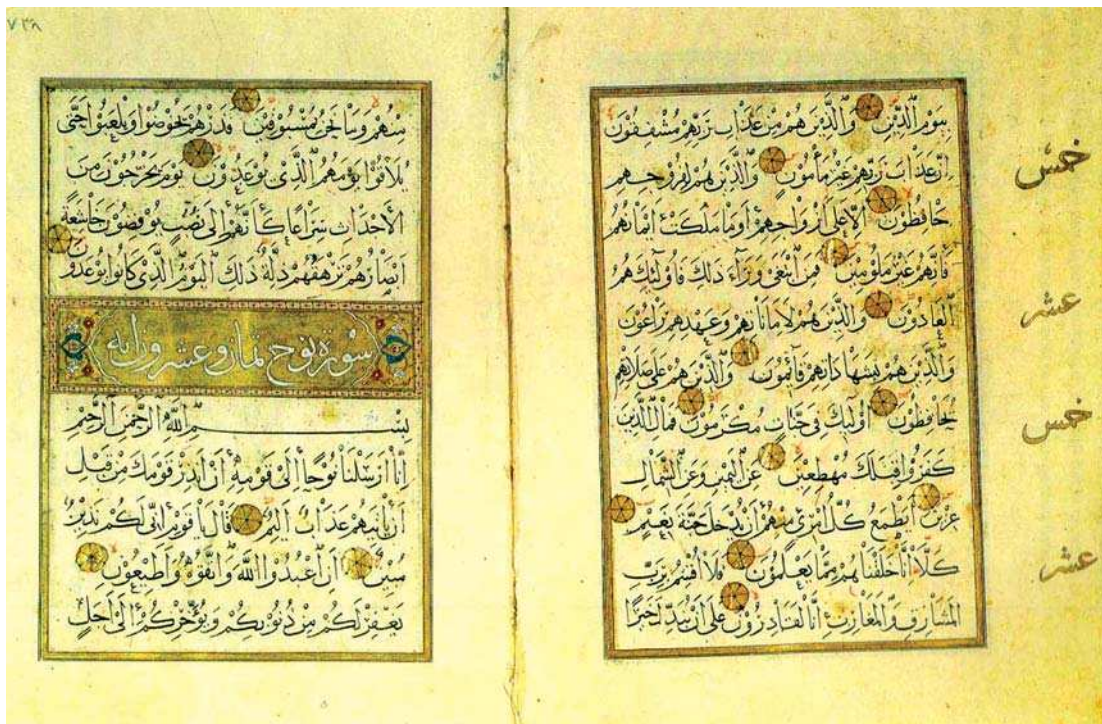 بِيَوْمِ الدِّينِ وَالَّذِينَ هُمْ مِنْ عَذَابِ رَبِّهِمْ مُشْفِقُونَ
إِنَّ عَذَابَ رَبِّهِمْ غَيْرُ مَأْمُونٍ وَالَّذِينَ هُمْ لِفُرُوجِهِمْ
حَافِظُونَ إِلَّا عَلَى أَزْوَاجِهِمْ أَوْ مَا مَلَكَتْ أَيْمَانُهُمْ
فَإِنَّهُمْ غَيْرُ مَلُومِينَ فَمَنِ ابْتَغَى وَرَاءَ ذَلِكَ فَأُولَئِكَ هُمُ
الْعَادُونَ وَالَّذِينَ هُمْ لِأَمَانَاتِهِمْ وَعَهْدِهِمْ رَاعُونَ
وَالَّذِينَ هُمْ بِشَهَادَاتِهِمْ قَائِمُونَ وَالَّذِينَ هُمْ عَلَى صَلَاتِهِمْ
يُحَافِظُونَ أُولَئِكَ فِي جَنَّاتٍ مُكْرَمُونَ فَمَالِ الَّذِينَ
كَفَرُوا قِبَلَكَ مُهْطِعِينَ عَنِ الْيَمِينِ وَعَنِ الشِّمَالِ
عِزِينَ أَيَطْمَعُ كُلُّ امْرِئٍ مِنْهُمْ أَنْ يُدْخَلَ جَنَّةَ نَعِيمٍ
كَلَّا إِنَّا خَلَقْنَاهُمْ مِمَّا يَعْلَمُونَ فَلَا أُقْسِمُ بِرَبِّ
الْمَشَارِقِ وَالْمَغَارِبِ إِنَّا لَقَادِرُونَ عَلَى أَنْ نُبَدِّلَ خَيْرًا
خمس
عشر
خمس
عشر
٧٣٨
مِنْهُمْ وَمَا نَحْنُ بِمَسْبُوقِينَ فَذَرْهُمْ يَخُوضُوا وَيَلْعَبُوا حَتَّى
يُلَاقُوا يَوْمَهُمُ الَّذِي يُوعَدُونَ يَوْمَ يَخْرُجُونَ مِنَ
الْأَجْدَاثِ سِرَاعًا كَأَنَّهُمْ إِلَى نُصُبٍ يُوفِضُونَ خَاشِعَةً
أَبْصَارُهُمْ تَرْهَقُهُمْ ذِلَّةٌ ذَلِكَ الْيَوْمُ الَّذِي كَانُوا يُوعَدُونَ
سورة نوح ثمان وعشرون اية
بِسْمِ اللَّهِ الرَّحْمَنِ الرَّحِيمِ
إِنَّا أَرْسَلْنَا نُوحًا إِلَى قَوْمِهِ أَنْ أَنْذِرْ قَوْمَكَ مِنْ قَبْلِ
أَنْ يَأْتِيَهُمْ عَذَابٌ أَلِيمٌ قَالَ يَا قَوْمِ إِنِّي لَكُمْ نَذِيرٌ
مُبِينٌ أَنِ اعْبُدُوا اللَّهَ وَاتَّقُوهُ وَأَطِيعُونِ
يَغْفِرْ لَكُمْ مِنْ ذُنُوبِكُمْ وَيُؤَخِّرْكُمْ إِلَى أَجَلٍ